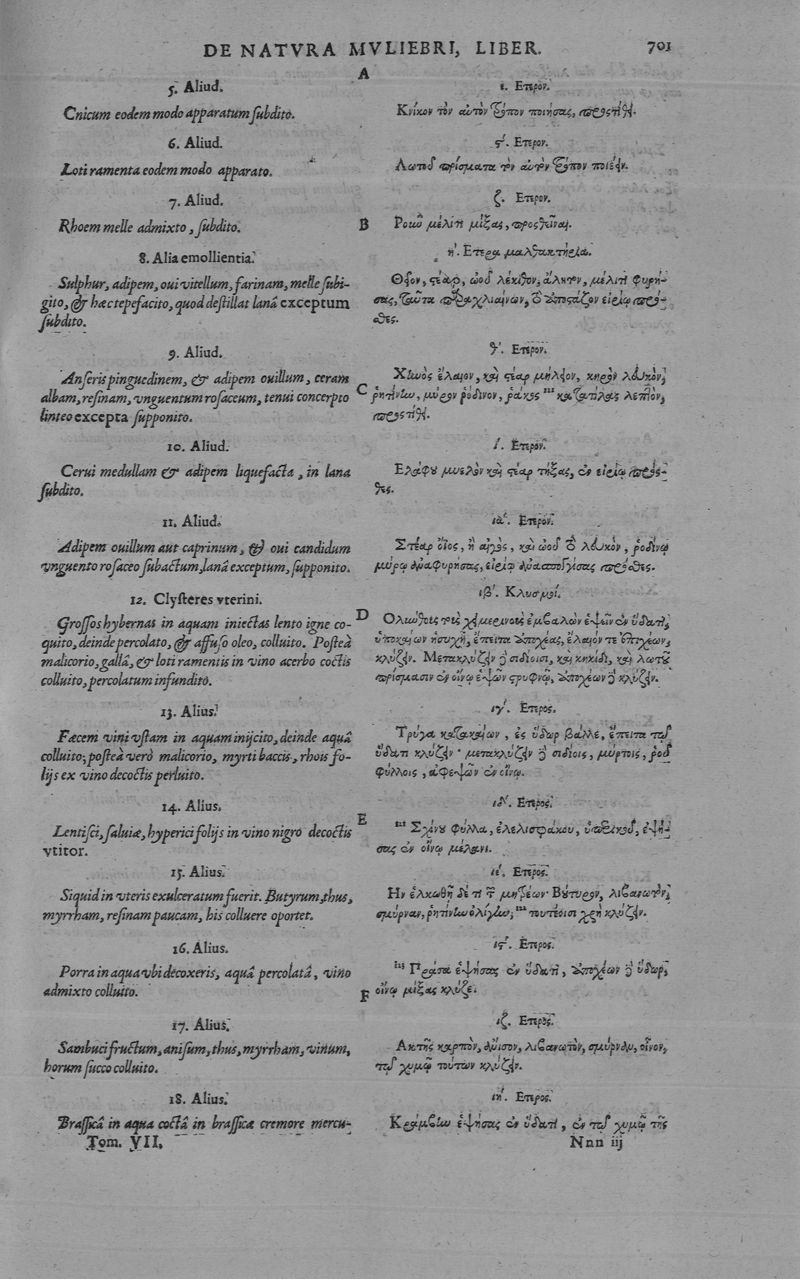 DE NATVRA MVLIEBRI, LIBER. 701
A
5. Aliud.
Cnicum eodem modo apparatum ſubdito.
6. Aliud.
Loti ramenta eodem modo apparato.
7. Aliud.
Rhoem melle admixto, ſubdito.
8. Alia emollientia.
Sulphur, adipem, oui vitellum, farinam, melle ſubi-
gito, & hæc tepefacito, quod deſtillat lanâ exceptum
ſubdito.
9. Aliud.
Anſeris pinguedinem, & adipem ouillum, ceram
albam, reſinam, vnguentum roſaceum, tenui concerpto
linteo excepta ſupponito.
10. Aliud.
Cerui medullam & adipem liquefacta, in lana
ſubdito.
11. Aliud.
Adipem ouillum aut caprinum, & oui candidum
vnguento roſaceo ſubactum, lanâ exceptum, ſupponito.
12. Clyſteres vterini.
Groſſos hybernas in aquam iniectas lento igne co-
quito, deinde percolato, & affuſo oleo, colluito. Poſteà
malicorio, gallâ, & loti ramentis in vino acerbo coctis
colluito, percolatum infundito.
13. Alius.
Fæcem vini vſtam in aquam inijcito, deinde aquâ
colluito; poſteà verò malicorio, myrti baccis, rhois fo-
lijs ex vino decoctis perluito.
14. Alius.
Lentiſci, ſaluiæ, hyperici folijs in vino nigro decoctis
vtitor.
15. Alius.
Siquid in vteris exulceratum fuerit. Butyrum, thus,
myrrham, reſinam paucam, his colluere oportet.
16. Alius.
Porra in aqua vbi decoxeris, aquâ percolatâ, vino
admixto colluito.
17. Alius.
Sambuci fructum, aniſum, thus, myrrham, vinum,
horum ſucco colluito.
18. Alius.
Braſſicâ in aqua coctâ in braſſicæ cremore mercu-
Tom. VII.
B
C
D
E
F
ε. Ετερον.
Κνίκον τὸν αὐτὸν τρόπον ποιήσας, προςτίθει.
ϛ΄. Ετερον.
Λωτοῦ πρίσματα τὸν αὐτὸν τρόπον ποιέειν.
ζ. Ετερον.
Ροιῶ μέλιτι μίξας, προςθεῖναι.
η΄. Ετερα μαλθακτήρια.
Θεῖον, στέαρ, ὠοῦ λέκιθον, ἄλητον, μέλιτι φυρή-
σας, ταῦτα παραχλιαίνων, τὸ ἀποστάζον εἰρίῳ πρός-
θες.
θ΄. Ετερον.
Χίωὸς ἔλαιον, καὶ στέαρ μήλειον, κηρὸν λευκὸν,
ῥητίνίω, μύρον ῥόδινον, ῥάκος καταtίλας λεπτὸν,
προςτίθει.
ι΄. Ετερον.
Ελάφου μυελὸν καὶ στέαρ τήξας, ἐν εἰρίῳ πρός-
θες.
ια΄. Ετερον.
Στέαρ ὄϊος, ἢ αἰγὸς, καὶ ὠοῦ τὸ λευκὸν, ῥοδίνῳ
μύρῳ ἀναφυρήσας, εἰρίῳ ἀνασπογγίσας πρόςθες.
ιβ΄. Κλυσμοί.
Ολιώθοις τοῖς χειμερινοῖς ἐμβαλὼν ἑψεῖν ἐν ὕδατι,
ὑποκαίων ἡσυχῇ, ἔπειτα ἀποχέας, ἔλαιόν τε ἐπιχέων,
κλύζειν. Μετακλύζειν δὲ σιδίοισι, καὶ κηκίδι, καὶ λωτοῦ
πρίσμασιν ἐν οἴνῳ ἑψῶν στρυφνῷ, ἀποχέων δὲ κλύζειν.
ιγ΄. Ετερος.
Τρύγα κατακαίων, ἐς ὕδωρ βάλλε, ἔπειτα τῷ
ὕδατι κλύζειν· μετακλύζειν δὲ σιδίοις, μύρτοις, ῥοῦ
φύλλοις, ἀφεψῶν ἐν οἴνῳ.
ιδ΄. Ετερος.
Σχίνου φύλλα, ἐλελισφάκου, ὑπερικοῦ, ἑψή-
σας ἐν οἴνῳ μέλανι.
ιε΄. Ετερος.
Ην ἑλκωθῇ δέ τι τῶν μητρέων· Βούτυρον, λιβανωτὸν,
σμύρναν, ῥητίνίω ὀλίγίω, τουτέοισι χρὴ κλύζειν.
ιϛ΄. Ετερος.
Πράσα ἑψήσας ἐν ὕδατι, ἀποχέων τὸ ὕδωρ,
οἴνῳ μίξας κλύζε.
ιζ. Ετερος.
Ακτῆς καρπὸν, ἄνισον, λιβανωτὸν, σμύρναν, οἶνον,
τῷ χυμῷ τούτων κλύζειν.
ιη΄. Ετερος.
Κράμβίω ἑψήσας ἐν ὕδατι, ἐν τῷ χυμῷ τῆς
Nnn iij